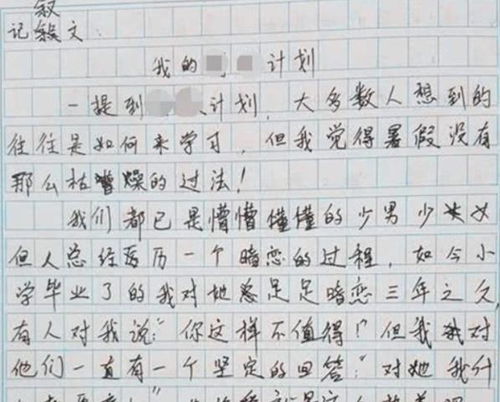 叙
记叙文:
我的 计划
一提到 计划，大多数人想到的
往往是如何来学习，但我觉得暑假没有
那么枯燥的过法！
我们都已是懵懵懂懂的少男少女
但人总经历一个暗恋的过程，如今小
学毕业了的我对她足足暗恋三年之久，
有人对我说：“你这样不值得！”但我对
他们一直有一个坚定的回答：“对她我什